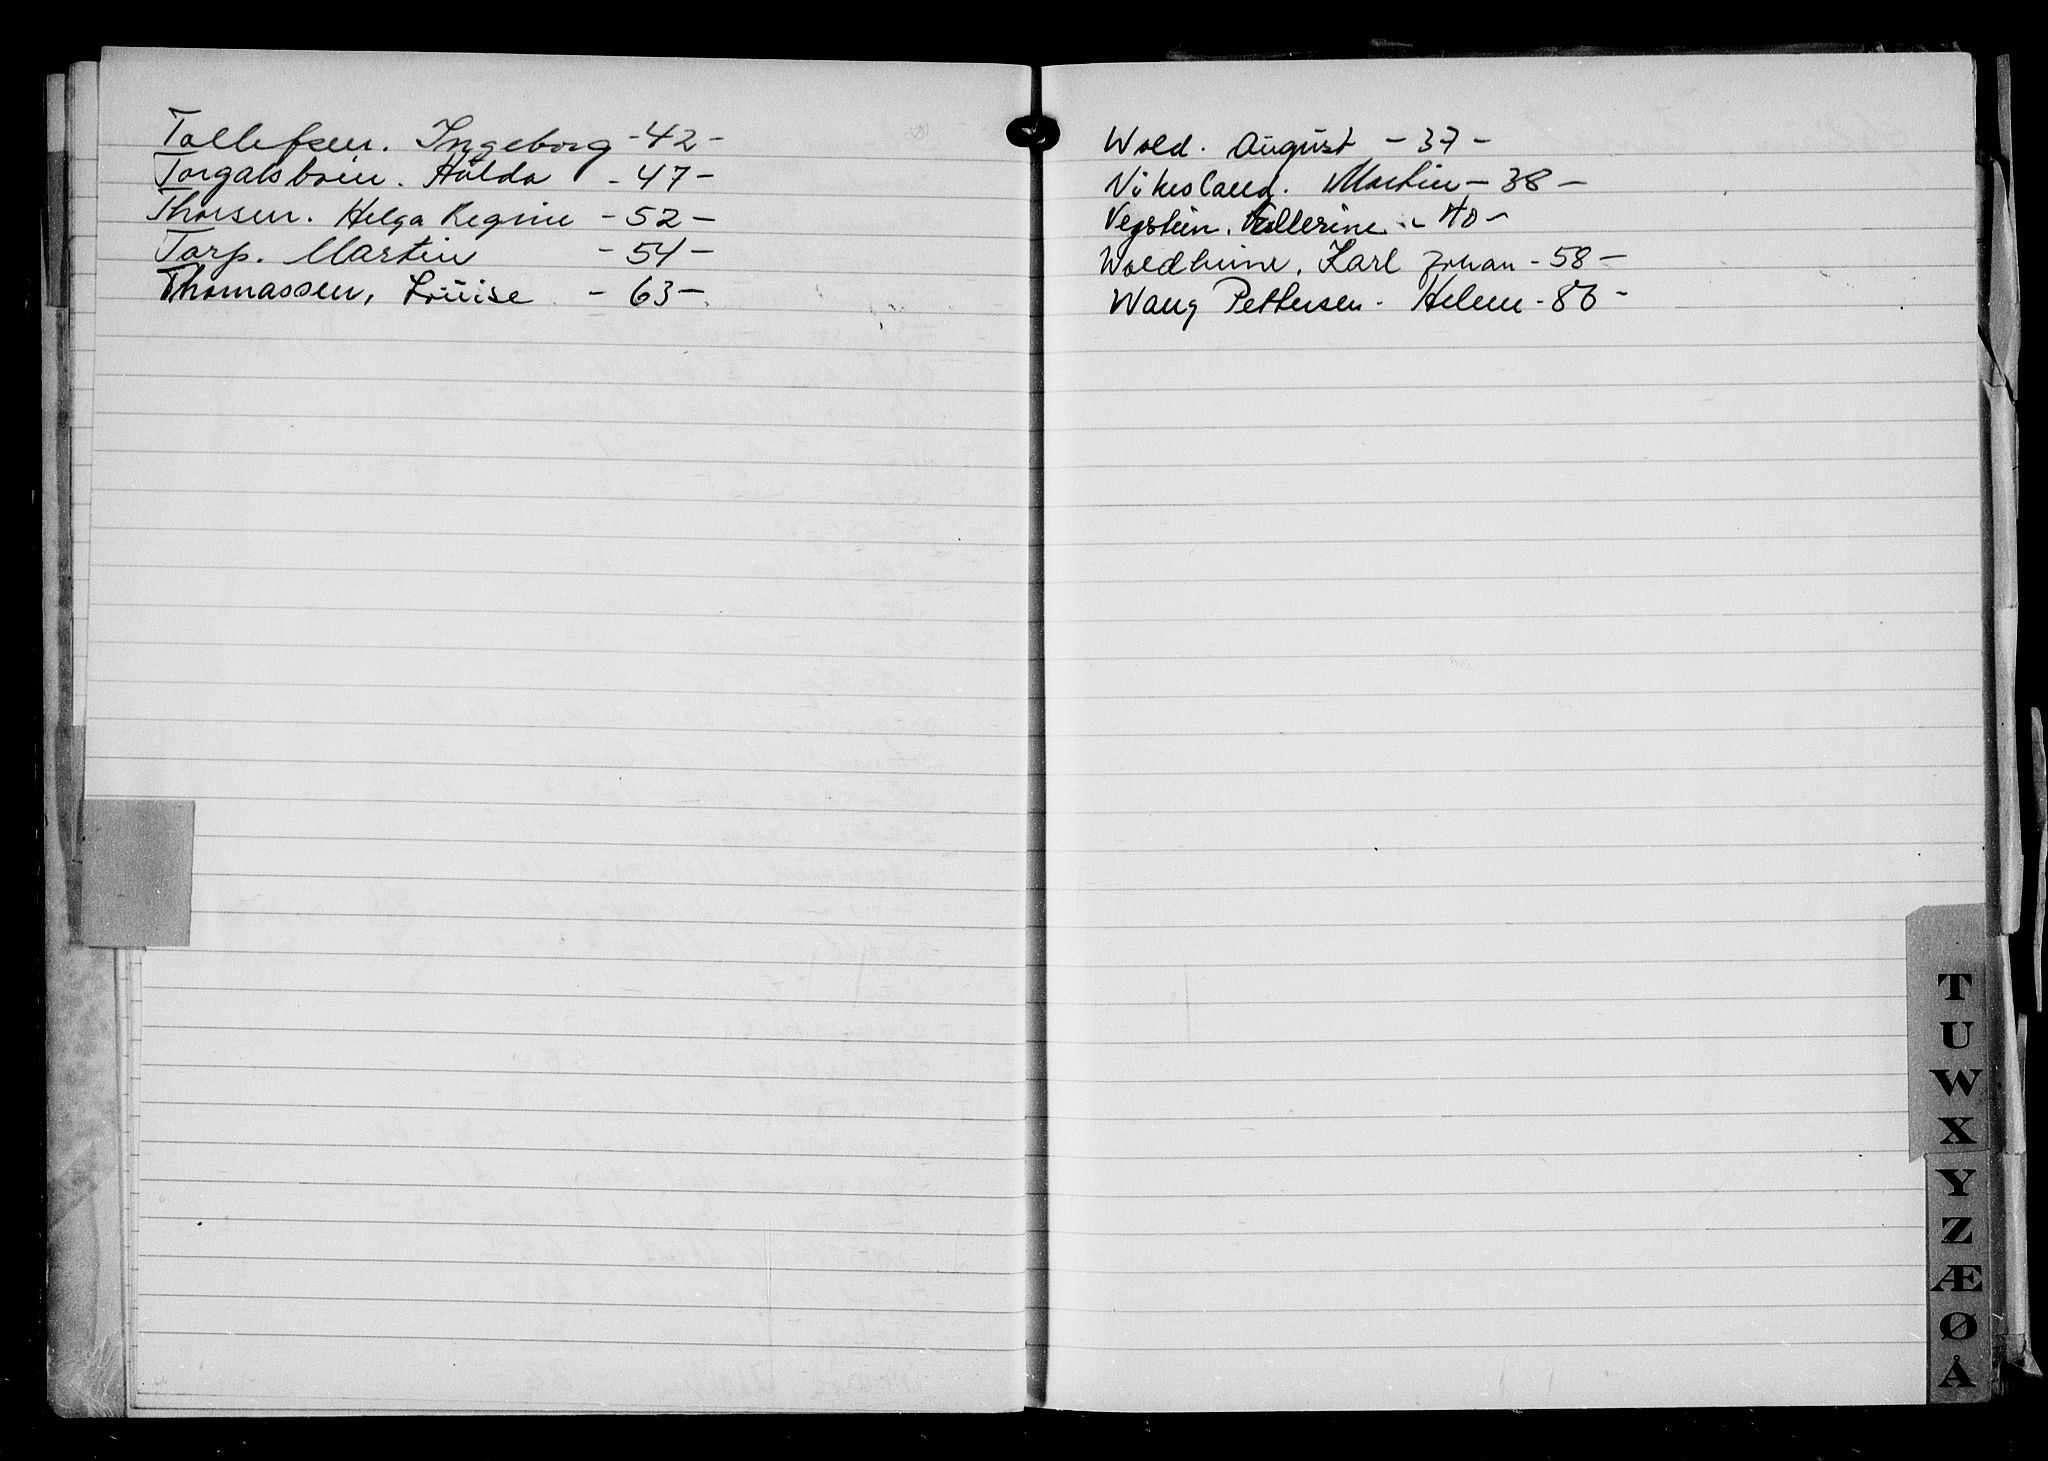 Tollefsen. Ingeborg - 42 -
Torgalsbøen. Hulda - 47 -
Thorsen. Helga Regine - 52 -
Tarp. Martin - 54 -
Thomassen, Louise - 63 -
Wold. August - 37 -
Vikesland. Martin - 38 -
Vegstein. - 40 -
Woldheim, Karl Johan - 58 -
Wang Pettersen. Helene - 86 -
T
U
W
X
Y
Z
Æ
Ø
Å